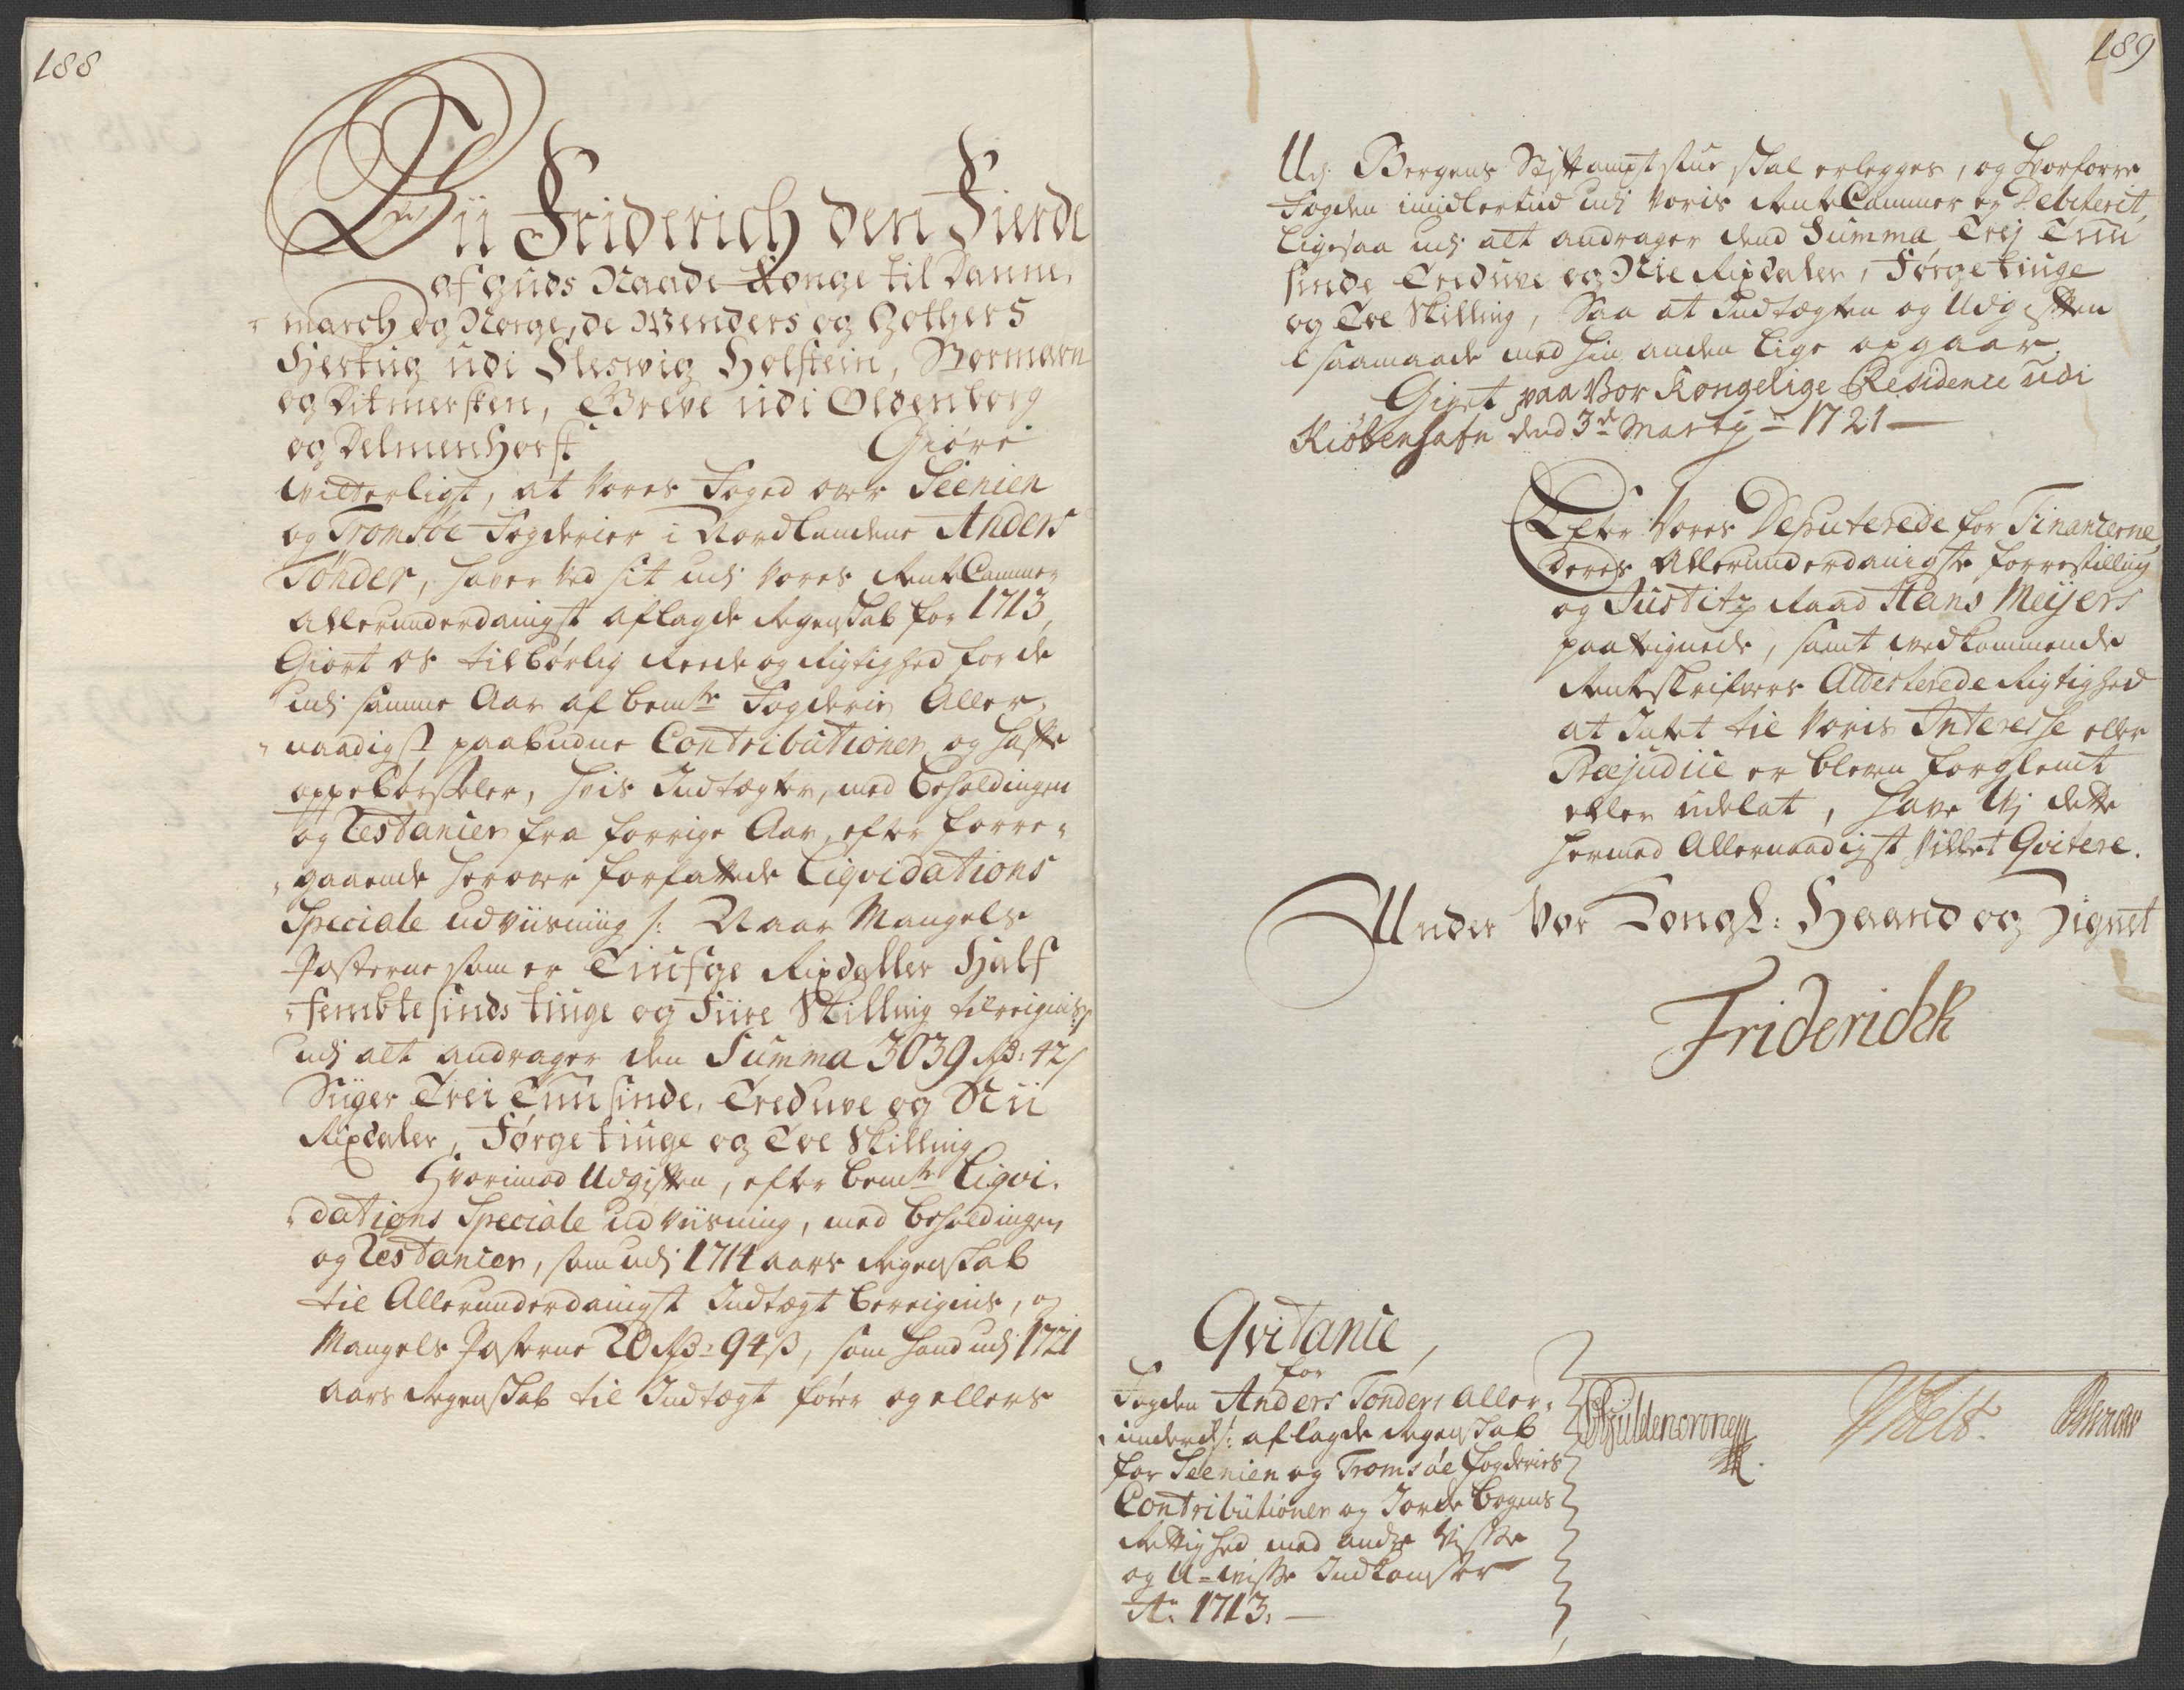 188
Vii Friderich den Fierde
af Guds Naade Konge til Danne,
march og Norge, de Wenders og Gothers
Hertug udi Sleswig Holstein, Stormarn
og Ditmersken, Greve udi Oldenborg
og Delmenhorst Giøre
Witterligt, at Vores Foged over Seenien
og Tromsøe Fogderier i Nordlandene Anders
Tønder, haver ved sit udj Vores RenteCammer
Allerunderdanigst aflagde Regenskab for 1713,
Giort os tilbørlig Reede og Rigtighed for de
udj samme Aar af bemte Fogderie Aller,
naadigst paabudne Contributioner og Haffte
oppebørseler, hvis Indtægter, med beholdingen
og Restancier fra forrige Aar, efter forre,
gaaende herover forfattede Liqvidations
Speciale udviisning /: Naar Mangels
Posterne som er Tiufge Rixdaller Half
femtesinds tiuge og Fiire Skilling tilreignis :/
udj alt andrager den Summa 3039 Rd: 42 s
Siiger Trei Tuusinde, Treduve og Nii
Rixdaler, Førgetiuge og Toe Skilling
Hvorimod Udgiften, efter bemte Liqvi,
dations Speciale udviisning, med beholdingen
og Restancier, som udj 1714 aars Regenskab
til Allerunderdanigst Indtægt bereignis, og
Mangels Posterne 20 Rd: 94 s, som hand udj 1721
aars Regenskab til Indtægt fører og ellers
189
Udj Bergens Stiftamptstue skal erlegges, og hvorforre
Fogden imidlertid udj Voris RenteCammer er Debiterit,
Ligesaa udj alt andrager dend Summa Trej Tuu
sinde Treduve og Nie Rixdaler, Førgetiuge
og Toe Skilling, Saa at Indtægten og Udgiften
i saamaade med hin anden lige opgaar.
Givet paa Vor Kongelige Residence udi
Kiøbenhafn dend 3de Martij 1721
Efter Vores Deputerede for Financerne
deres Allerunderdanigste forrestilling
og Justitz Raad Hans Meijers
paateignede, samt vedkommende
Rentskrifvers Attesterede Rigtighed
at Intet til Voris Interesse eller
Præjudice er bleven forglemt
eller udelat, have Vj dette
hermed Allernaadigst Villet Qvitere.
Under Vor Kongl: Haand og Zignet
Friderich R
Qvitance,
for
Fogden Anders Tønders Aller,
underd: aflagde Regenskab
for Seenien og Tromsøe fogderies
Contributioner og Jordebogens
Rettighed med andre Visse
og U-visse Indkomster
Ao 1713.
Güldencrone